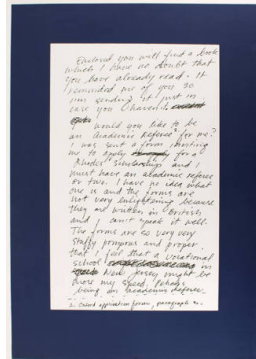 Enclosed you will find a book
which I have no doubt that
you have already read. It
reminded me of you so
I'm sending it just in
case you haven't.
Would you like to be
an academic referee for me?
I was sent a form inviting
me to apply for a
Rhodes Scholarship and I
must have an academic referee
or two. I have no idea what
one is and the forms are
not very enlightening because
they are written in British
and I can't speak it well.
The forms are so very very
stuffy pompous and proper
that I feel that a vocational
school in
New Jersey might be
more my speed. Perhaps
being an academic referee
2. application forms, paragraph